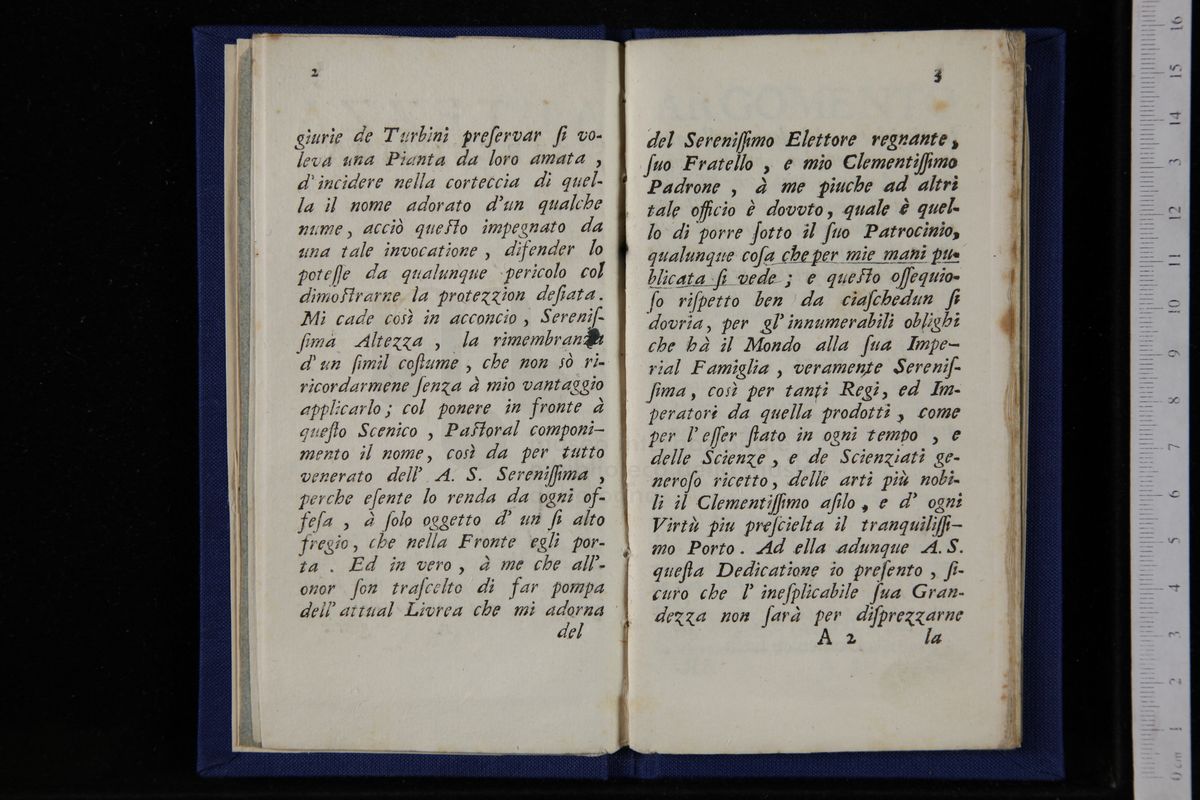 2
giurie de Turbini preſervar ſi vo-
leva una Pianta da loro amata ,
d'incidere nella corteccia di quel-
la il nome adorato d'un qualche
nume, acciò queſto impegnato da
una tale invocatione , difender lo
poteſſe da qualunque pericolo col
dimoſtrarne la protezzion deſiata.
Mi cade così in acconcio , Sereniſ-
ſima Altezza , la rimembranza
d'un ſimil coſtume , che non sò ri-
ricordarmene ſenza à mio vantaggio
applicarlo; col ponere in fronte à
queſto Scenico , Paſtoral componi-
mento il nome, così da per tutto
venerato dell' A. S. Sereniſſima ,
perche eſente lo renda da ogni of-
feſa , à ſolo oggetto d' un ſi alto
fregio, che nella Fronte egli por-
ta . Ed in vero , à me che all'-
onor ſon traſcelto di far pompa
dell' attual Livrea che mi adorna
del
3
del Sereniſſimo Elettore regnante,
ſuo Fratello , e mio Clementiſſimo
Padrone , à me piuche ad altri
tale officio è dovvto, quale è quel-
lo di porre ſotto il ſuo Patrocinio,
qualunque coſa che per mie mani pu-
blicata ſi vede ; e queſto oſſequio-
ſo riſpetto ben da ciaſchedun ſi
dovria, per gl'innumerabili oblighi
che hà il Mondo alla ſua Impe-
rial Famiglia , veramente Sereniſ-
ſima, così per tanti Regi, ed Im-
peratori da quella prodotti , come
per l'eſſer ſtato in ogni tempo , e
delle Scienze , e de Scienziati ge-
neroſo ricetto, delle arti più nobi-
li il Clementiſſimo aſilo , e d' ogni
Virtù piu preſcielta il tranquiliſſi-
mo Porto . Ad ella adunque A. S.
queſta Dedicatione io preſento , ſi-
curo che l' ineſplicabile ſua Gran-
dezza non ſarà per diſprezzarne
A 2 la
16
15
14
13
12
11
10
9
8
7
6
5
4
3
2
1
0 cm